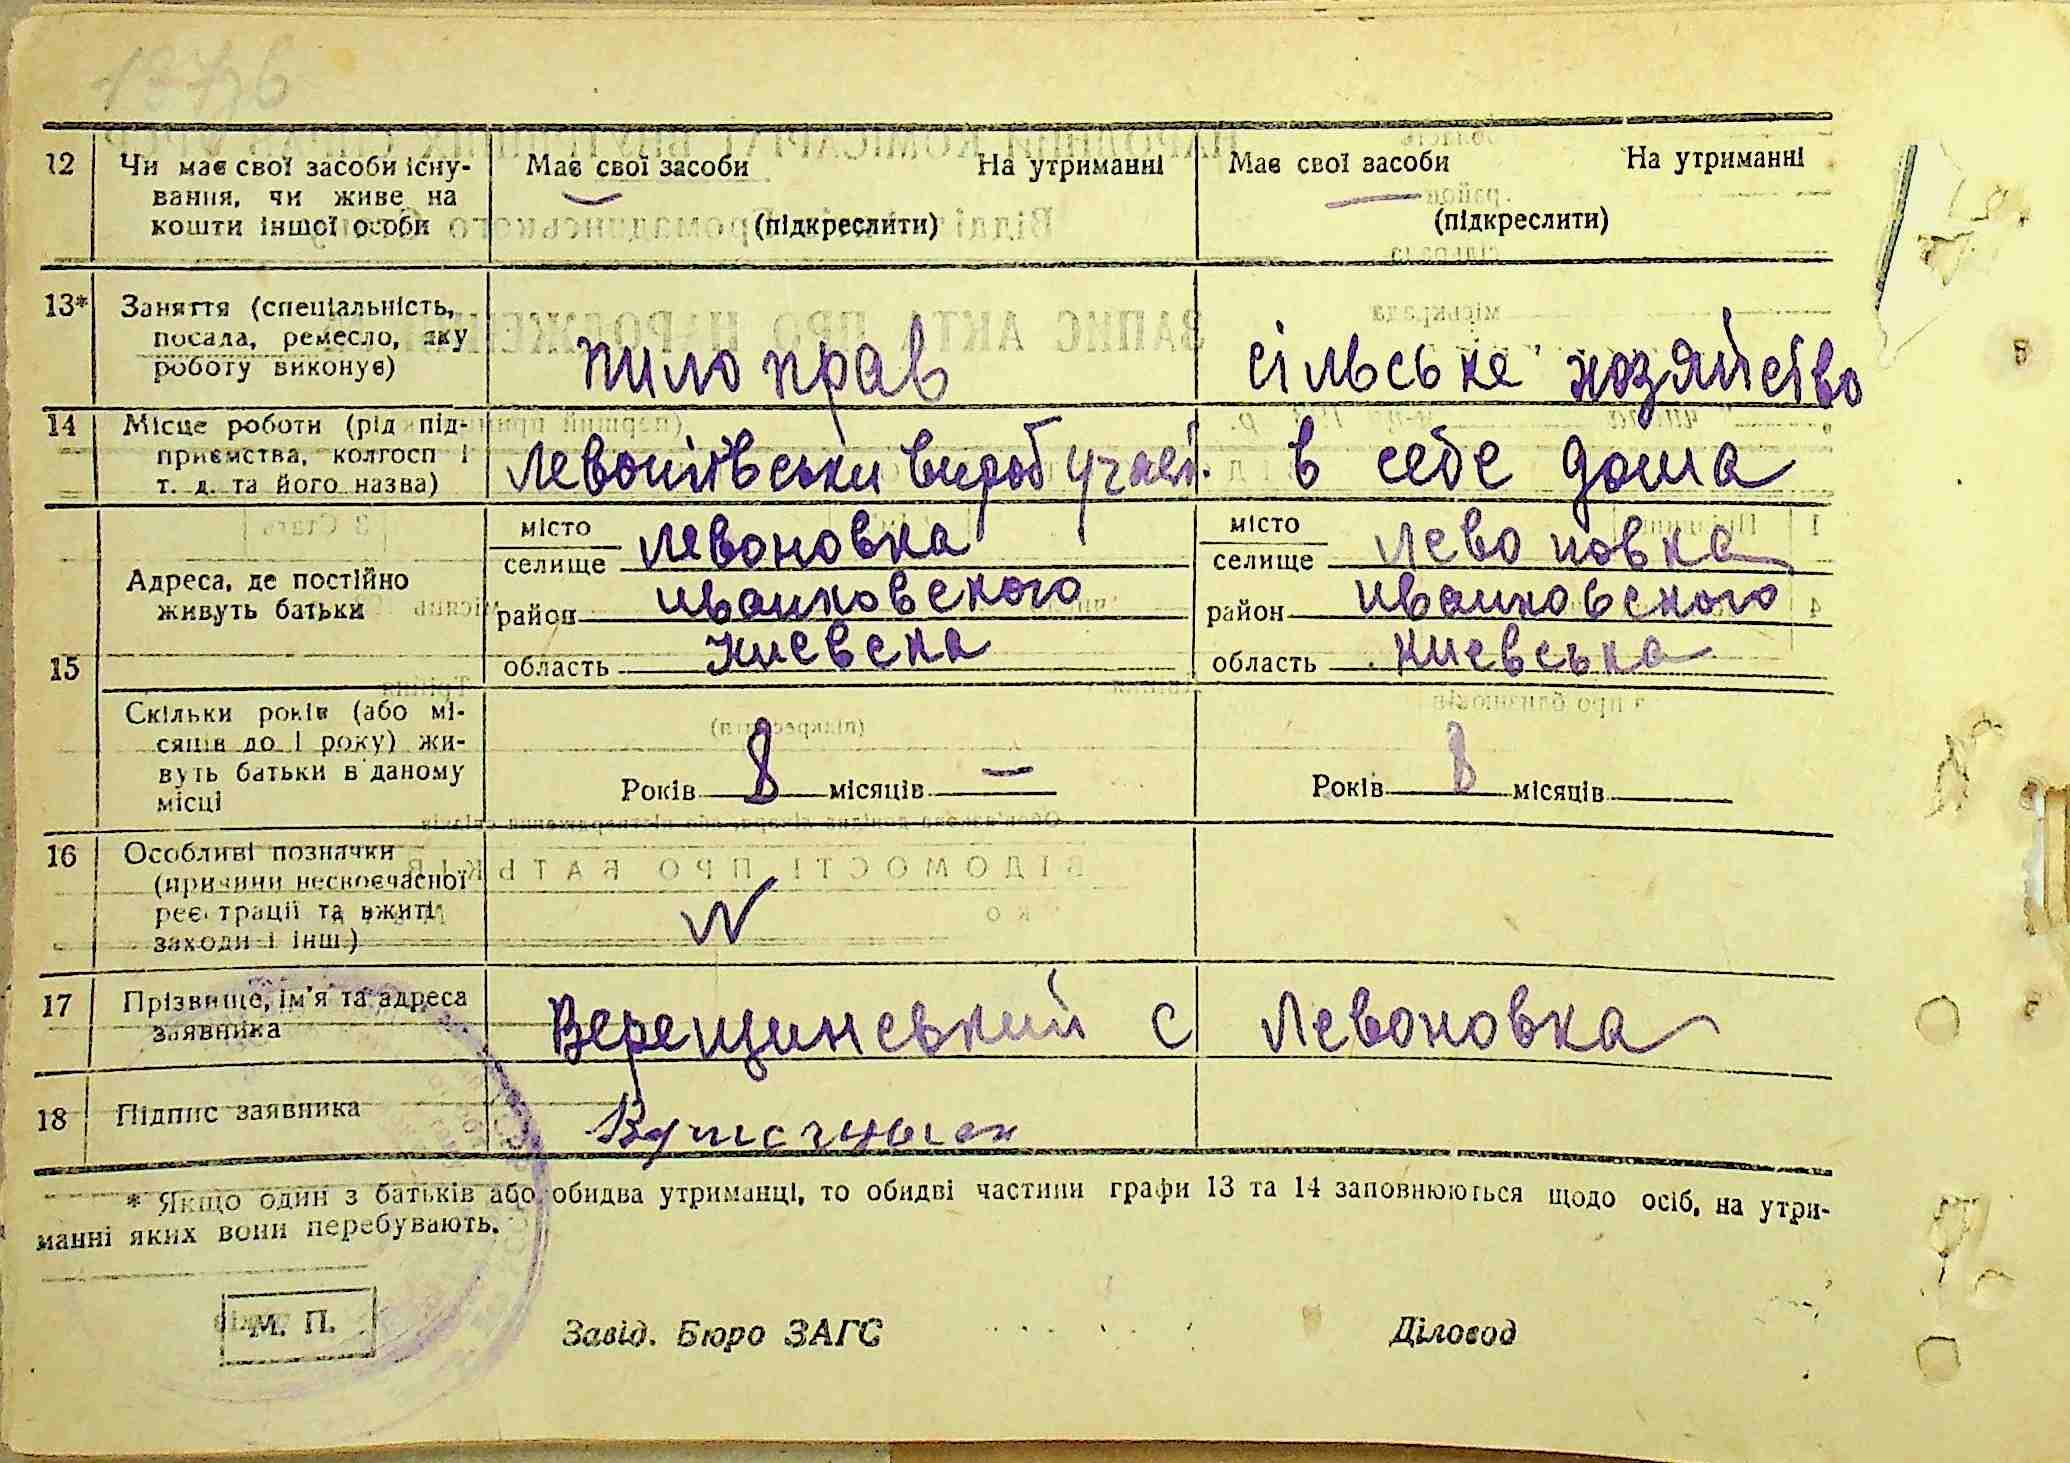 12 Чи має свої засоби існу- Має свої засоби На утриманні Має свої засоби На утриманні
вання, чи живе на
кошти іншої особи (підкреслити) (підкреслити)
13* Заняття (спеціальність,
посада, ремесло, яку
роботу виконує) пилоправ сільське хозяйство
14 Місце роботи (рід під-
приємства, колгосп і
т. д. та його назва) в себе дома
місто місто
селище Левоновка селище Левоновка
Адреса, де постійно
живуть батьки район Иванковского район Иванковского
15 область Киевска область Киевська
Скільки років (або мі-
сяців до 1 року) жи-
вуть батьки в даному
місці Років 8 місяців — Років 8 місяців
16 Особливі позначки
(причини несвоєчасної
реєстрації та вжиті
заходи і інш.)
17 Прізвище, ім'я та адреса
заявника Верещинський с Левоновка
18 Підпис заявника
* Якщо один з батьків або обидва утриманці, то обидві частини графи 13 та 14 заповнюються щодо осіб, на утри-
манні яких вони перебувають.
М. П. Завід. Бюро ЗАГС Діловод